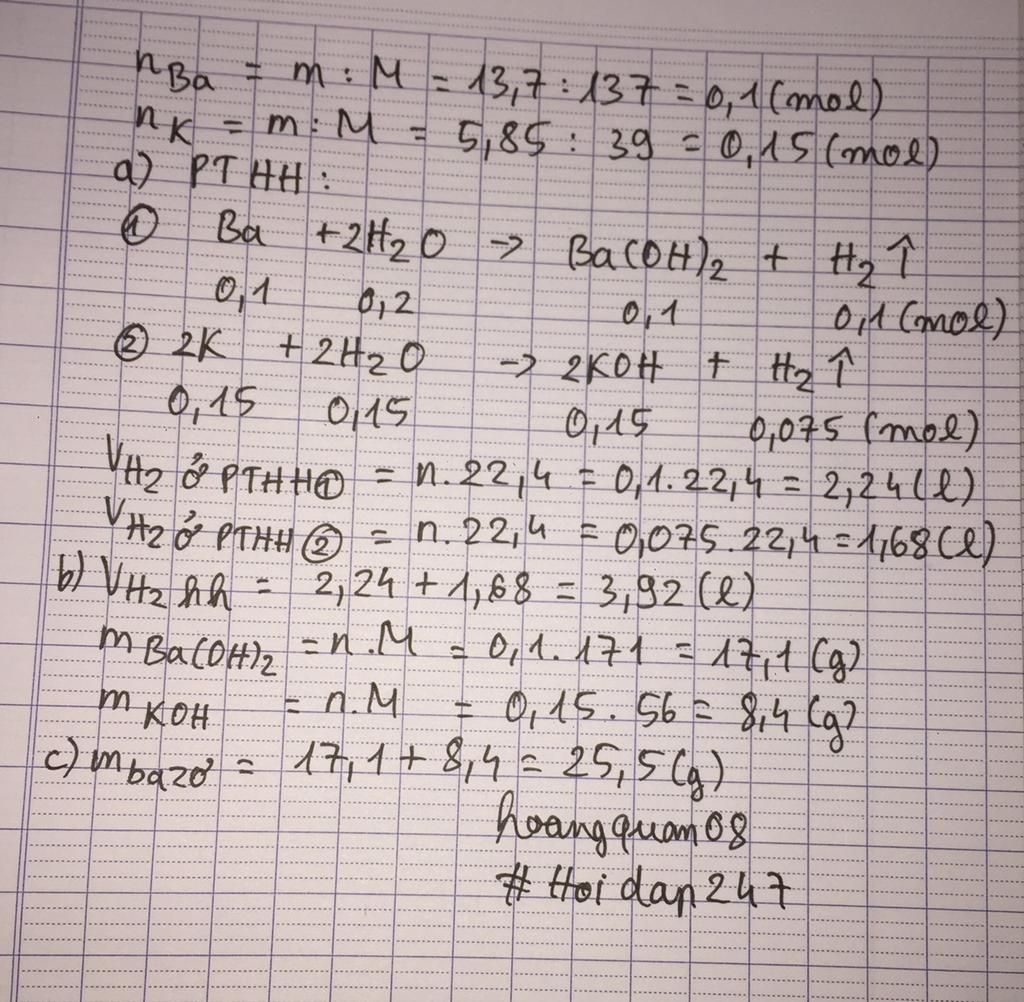 nBa = m : M = 13,7 : 137 = 0,1 (mol)
nK = m : M = 5,85 : 39 = 0,15 (mol)
a) PTHH :
① Ba + 2H2O → Ba(OH)2 + H2↑
0,1 0,2 0,1 0,1 (mol)
② 2K + 2H2O → 2KOH + H2↑
0,15 0,15 0,15 0,075 (mol)
VH2 ở PTHH① = n.22,4 = 0,1.22,4 = 2,24 (l)
VH2 ở PTHH② = n.22,4 = 0,075.22,4 = 1,68 (l)
b) VH2 hh = 2,24 + 1,68 = 3,92 (l)
mBa(OH)2 = n.M = 0,1.171 = 17,1 (g)
mKOH = n.M = 0,15.56 = 8,4 (g)
c) mbazơ = 17,1 + 8,4 = 25,5 (g)
hoangquan08
# Hoidap247